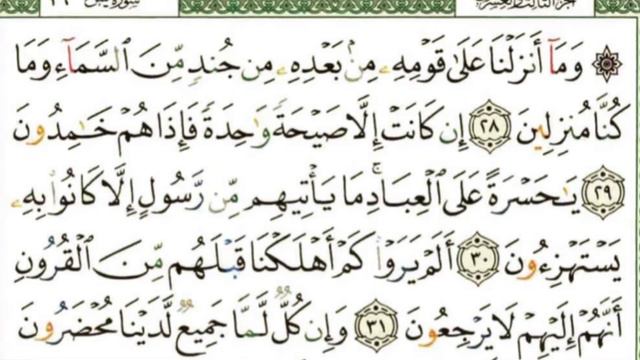 سورة يس
الجزء الثالث والعشرون
۞ وَمَآ أَنزَلْنَا عَلَىٰ قَوْمِهِۦ مِنۢ بَعْدِهِۦ مِن جُندٍ مِّنَ ٱلسَّمَآءِ وَمَا
كُنَّا مُنزِلِينَ ٢٨ إِن كَانَتْ إِلَّا صَيْحَةً وَٰحِدَةً فَإِذَا هُمْ خَـٰمِدُونَ
٢٩ يَـٰحَسْرَةً عَلَى ٱلْعِبَادِ ۚ مَا يَأْتِيهِم مِّن رَّسُولٍ إِلَّا كَانُوا۟ بِهِۦ
يَسْتَهْزِءُونَ ٣٠ أَلَمْ يَرَوْا۟ كَمْ أَهْلَكْنَا قَبْلَهُم مِّنَ ٱلْقُرُونِ
أَنَّهُمْ إِلَيْهِمْ لَا يَرْجِعُونَ ٣١ وَإِن كُلٌّ لَّمَّا جَمِيعٌ لَّدَيْنَا مُحْضَرُونَ